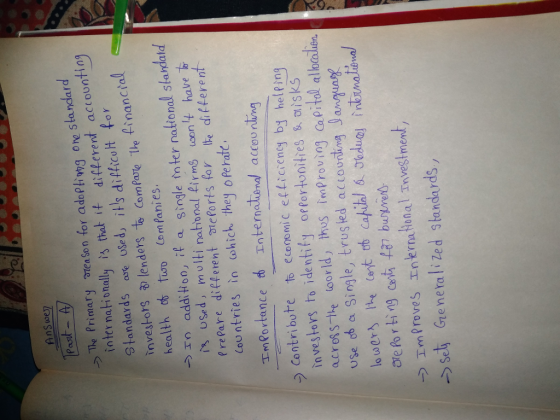 Answer
Part - A
→ The Primary reason for adopting one standard
internationally is that if different accounting
Standards are used, it's difficult for
investors or lenders to compare the financial
health of two companies.
→ In addition, if a single international standard
is used, multinational firms won't have to
prepare different reports for the different
countries in which they operate.
Importance of International accounting
→ Contribute to economic efficiency by helping
investors to identify opportunities & risks
across the world, thus improving capital allocation
use of a single, trusted accounting language
lowers the cost of capital & reduces international
reporting costs for business
→ Improves International Investment,
→ Sets Generalized standards,